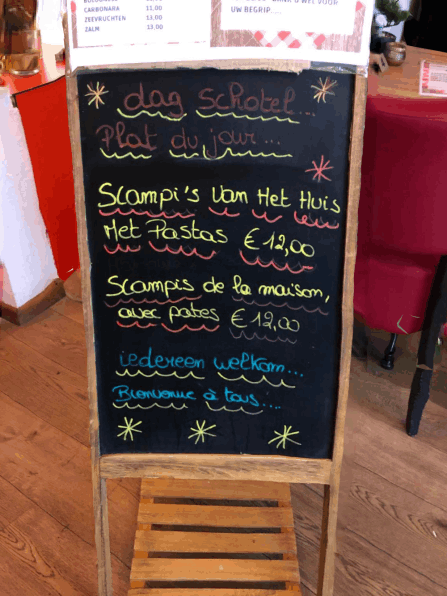 CARBONARA 11,00
ZEEVRUCHTEN 13,00
ZALM 13,00
WEL VOOR
UW BEGRIP....
dag Schotel...
Plat du jour...
Scampi's Van Het Huis
Met Pastas €12,00
Scampis de la maison,
avec pates €12,00
iedereen welkom...
Bienvenue à tous....